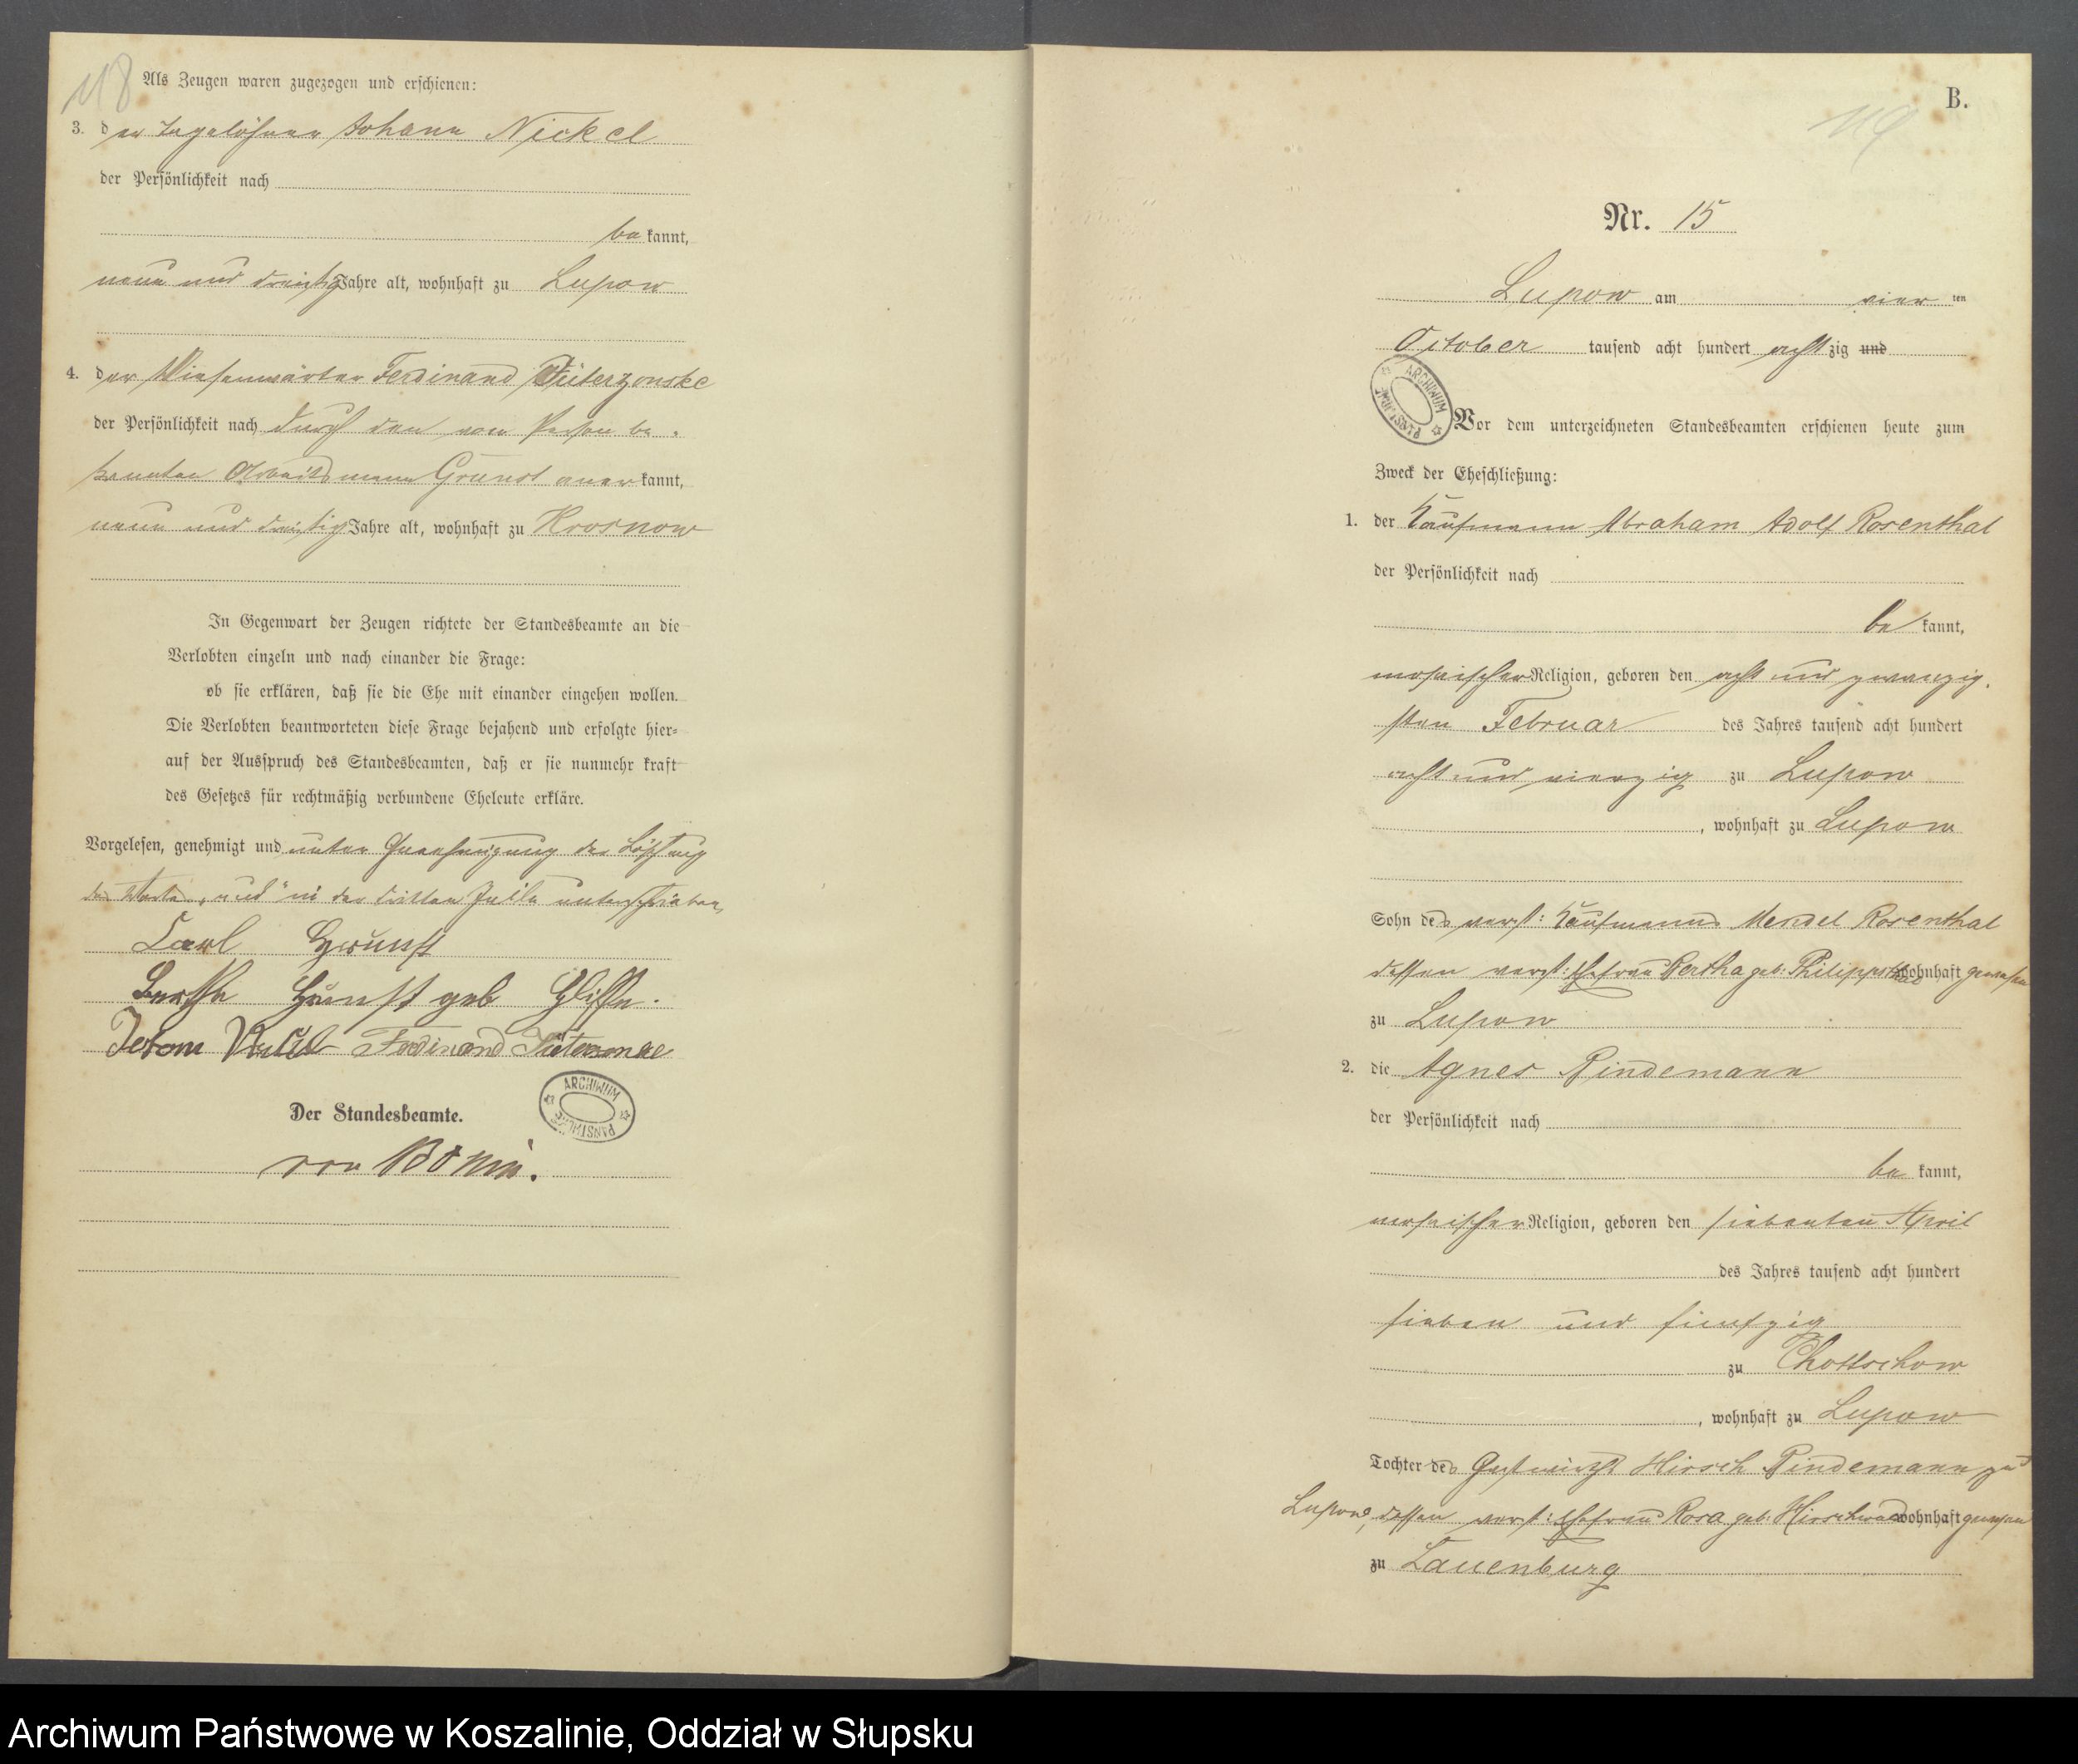 118
Als Zeugen waren zugezogen und erschienen:
3. der Tagelöhner Johann Nickel
der Persönlichkeit nach
bekannt,
neun und dreißig Jahre alt, wohnhaft zu Lupow
4. der Wiesenwärter Ferdinand
der Persönlichkeit nach durch den von Person be-
kannten Arbeitsmann Grunst anerkannt,
neun und dreißig Jahre alt, wohnhaft zu Krosnow
In Gegenwart der Zeugen richtete der Standesbeamte an die
Verlobten einzeln und nach einander die Frage:
ob sie erklären, daß sie die Ehe mit einander eingehen wollen.
Die Verlobten beantworteten diese Frage bejahend und erfolgte hier-
auf der Ausspruch des Standesbeamten, daß er sie nunmehr kraft
des Gesetzes für rechtmäßig verbundene Eheleute erkläre.
Vorgelesen, genehmigt und unter Genehmigung der Löschung
des Wortes „und“ in der dritten Zeile unterschrieben,
Carl Grunst
Bertha Grunst geb
Ferdinand
Der Standesbeamte.
von Bonin.
ARCHIWUM PAŃSTWOWE
B.
119
Nr. 15
Lupow am vierten
October tausend acht hundert achtzig und
ARCHIWUM PAŃSTWOWE
Vor dem unterzeichneten Standesbeamten erschienen heute zum
Zweck der Eheschließung:
1. der Kaufmann Abraham Adolf Rosenthal
der Persönlichkeit nach
bekannt,
mosaischer Religion, geboren den acht und zwanzig-
sten Februar des Jahres tausend acht hundert
acht und vierzig zu Lupow
, wohnhaft zu Lupow
Sohn des verst: Kaufmanns Mendel Rosenthal
dessen verst: Ehefrau Bertha geb: wohnhaft gewesen
zu Lupow
2. die Agnes Rindemann
der Persönlichkeit nach
bekannt,
mosaischer Religion, geboren den siebenten April
des Jahres tausend acht hundert
sieben und fünfzig
zu Chottschow
, wohnhaft zu Lupow
Tochter des Gastwirths Hirsch Rindemann zu
Lupow, dessen verst: Ehefrau Rosa geb: wohnhaft gewesen
zu Lauenburg
Archiwum Państwowe w Koszalinie, Oddział w Słupsku